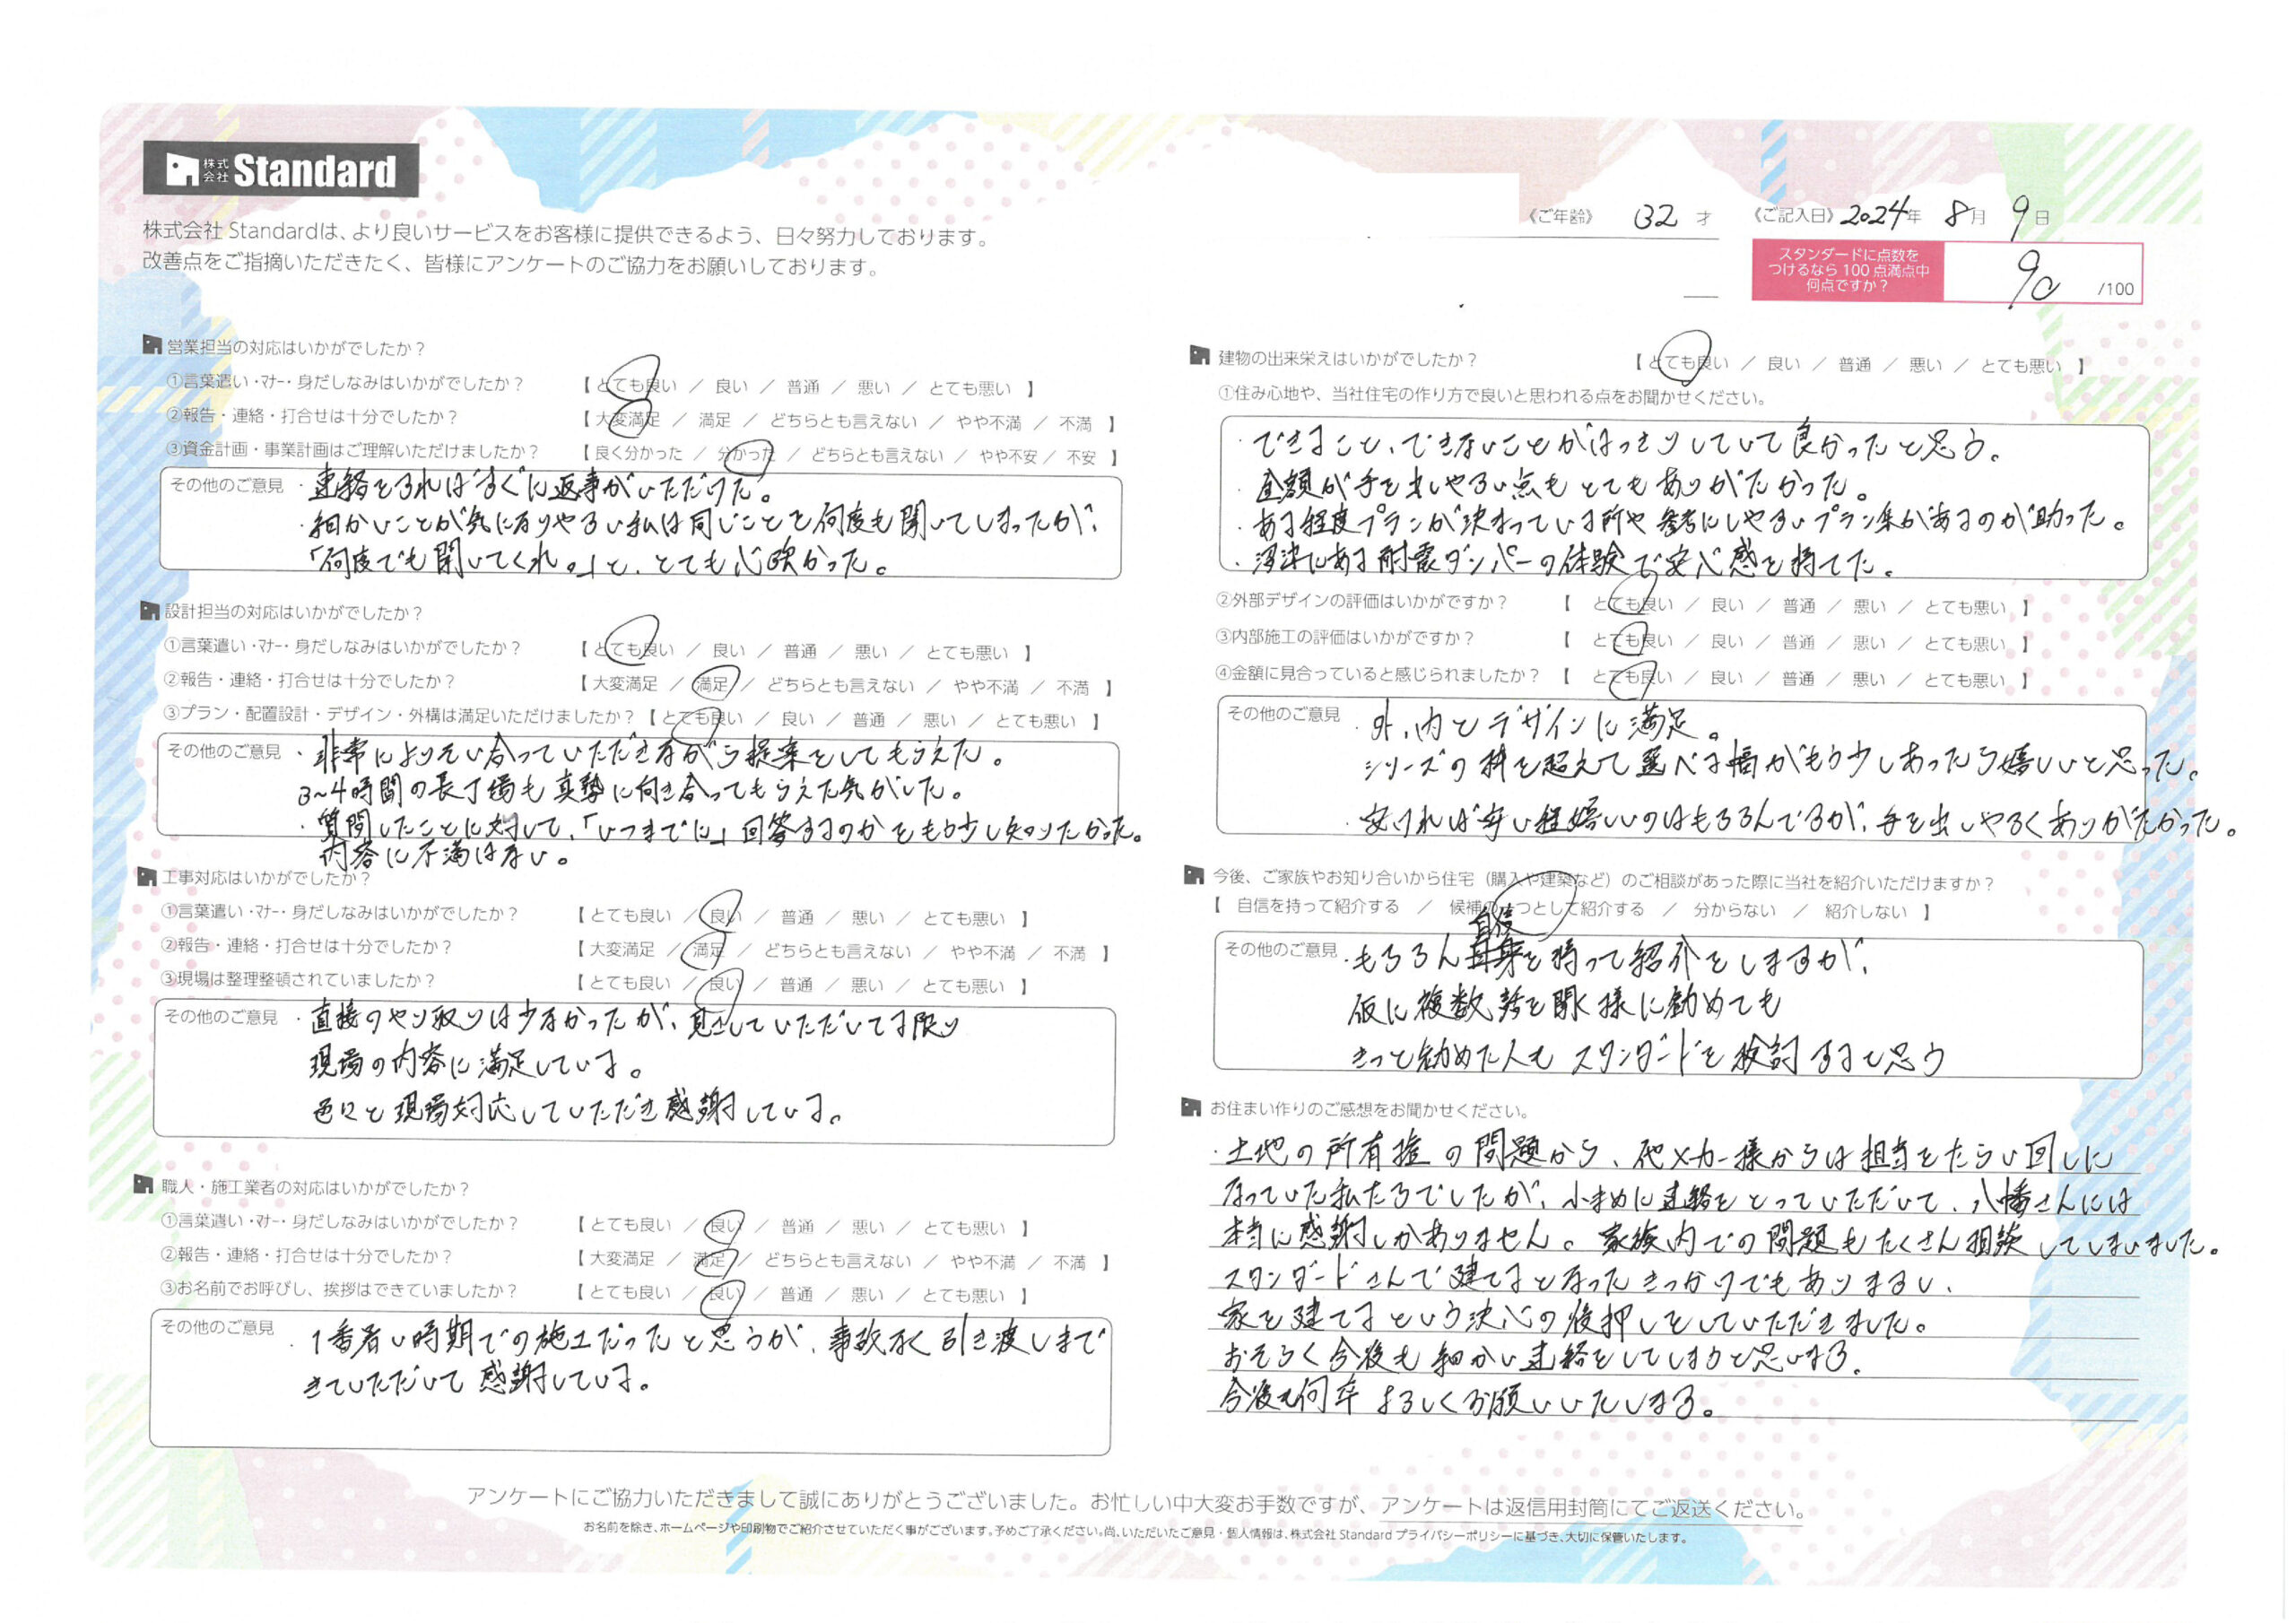 株式会社 Standard
株式会社 Standardは、より良いサービスをお客様に提供できるよう、日々努力しております。
改善点をご指摘いただきたく、皆様にアンケートのご協力をお願いしております。
《ご年齢》 32 才 《ご記入日》2024年 8月 9日
スタンダードに点数を
つけるなら100点満点中
何点ですか？
90 /100
営業担当の対応はいかがでしたか？
①言葉遣い・マナー・身だしなみはいかがでしたか？ 【 とても良い ／ 良い ／ 普通 ／ 悪い ／ とても悪い 】
②報告・連絡・打合せは十分でしたか？ 【 大変満足 ／ 満足 ／ どちらとも言えない ／ やや不満 ／ 不満 】
③資金計画・事業計画はご理解いただけましたか？ 【 良く分かった ／ 分かった ／ どちらとも言えない ／ やや不安 ／ 不安 】
その他のご意見 ・連絡をすればすぐに返事がいただけた。
・細かいことが気になりやすい私は同じことを何度も聞いてしまったが、
「何度でも聞いてくれ。」と、とても心強かった。
設計担当の対応はいかがでしたか？
①言葉遣い・マナー・身だしなみはいかがでしたか？ 【 とても良い ／ 良い ／ 普通 ／ 悪い ／ とても悪い 】
②報告・連絡・打合せは十分でしたか？ 【 大変満足 ／ 満足 ／ どちらとも言えない ／ やや不満 ／ 不満 】
③プラン・配置設計・デザイン・外構は満足いただけましたか？【 とても良い ／ 良い ／ 普通 ／ 悪い ／ とても悪い 】
その他のご意見 ・非常によりそい合っていただきながら提案をしてもらえた。
3~4時間の長丁場も真摯に向き合ってもらえた気がした。
・質問したことに対して、「いつまでに」回答するのかをもう少し知りたかった。
内容に不満はない。
工事対応はいかがでしたか？
①言葉遣い・マナー・身だしなみはいかがでしたか？ 【 とても良い ／ 良い ／ 普通 ／ 悪い ／ とても悪い 】
②報告・連絡・打合せは十分でしたか？ 【 大変満足 ／ 満足 ／ どちらとも言えない ／ やや不満 ／ 不満 】
③現場は整理整頓されていましたか？ 【 とても良い ／ 良い ／ 普通 ／ 悪い ／ とても悪い 】
その他のご意見 ・直接のやり取りは少なかったが、見せていただいてる限り
現場の内容に満足している。
色々と現場対応していただき感謝している。
職人・施工業者の対応はいかがでしたか？
①言葉遣い・マナー・身だしなみはいかがでしたか？ 【 とても良い ／ 良い ／ 普通 ／ 悪い ／ とても悪い 】
②報告・連絡・打合せは十分でしたか？ 【 大変満足 ／ 満足 ／ どちらとも言えない ／ やや不満 ／ 不満 】
③お名前でお呼びし、挨拶はできていましたか？ 【 とても良い ／ 良い ／ 普通 ／ 悪い ／ とても悪い 】
その他のご意見 ・1番暑い時期での施工だったと思うが、事故なく引き渡しまで
きていただいて感謝している。
建物の出来栄えはいかがでしたか？ 【 とても良い ／ 良い ／ 普通 ／ 悪い ／ とても悪い 】
①住み心地や、当社住宅の作り方で良いと思われる点をお聞かせください。
・できること、できないことがはっきりしていて良かったと思う。
・金額が手を出しやすい点もとてもありがたかった。
・ある程度プランが決まっている所や参考にしやすいプラン集があるのが助った。
・沼津にある耐震ダンパーの体験で安心感を持てた。
②外部デザインの評価はいかがですか？ 【 とても良い ／ 良い ／ 普通 ／ 悪い ／ とても悪い 】
③内部施工の評価はいかがですか？ 【 とても良い ／ 良い ／ 普通 ／ 悪い ／ とても悪い 】
④金額に見合っていると感じられましたか？ 【 とても良い ／ 良い ／ 普通 ／ 悪い ／ とても悪い 】
その他のご意見 ・外、内とデザインに満足。
シリーズの枠を超えて選べる幅がもう少しあったら嬉しいと思った。
・安ければ安い程嬉しいのはもちろんですが、手を出しやすくありがたかった。
今後、ご家族やお知り合いから住宅（購入や建築など）のご相談があった際に当社を紹介いただけますか？
【 自信を持って紹介する ／ 候補の一つとして紹介する ／ 分からない ／ 紹介しない 】
その他のご意見 ・もちろん自信を持って紹介をしますが、
仮に複数話を聞く様に勧めても
きっと勧めた人もスタンダードを検討すると思う
お住まい作りのご感想をお聞かせください。
・土地の所有権の問題から、他メーカー様からは担当をたらい回しに
なっていた私たちでしたが、小まめに連絡をとっていただいて、八幡さんには
本当に感謝しかありません。家族内での問題もたくさん相談してしまいました。
スタンダードさんで建てるとなったきっかけでもありますし、
家を建てるという決心の後押しをしていただきました。
おそらく今後も細かい連絡をしてしまうと思います。
今後も何卒よろしくお願いいたします。
アンケートにご協力いただきまして誠にありがとうございました。お忙しい中大変お手数ですが、アンケートは返信用封筒にてご返送ください。
お名前を除き、ホームページや印刷物でご紹介させていただく事がございます。予めご了承ください。尚、いただいたご意見・個人情報は、株式会社 Standard プライバシーポリシーに基づき、大切に保管いたします。